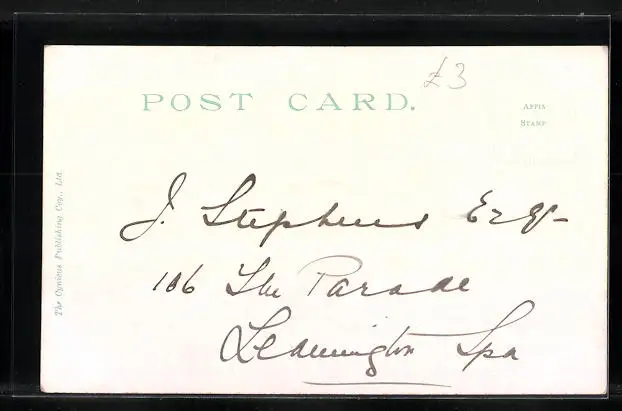 £3
POST CARD.
AFFIX
STAMP
J. Stephens Esq-
106 The Parade
Leamington Spa
The Cynicus Publishing Coy., Ltd.